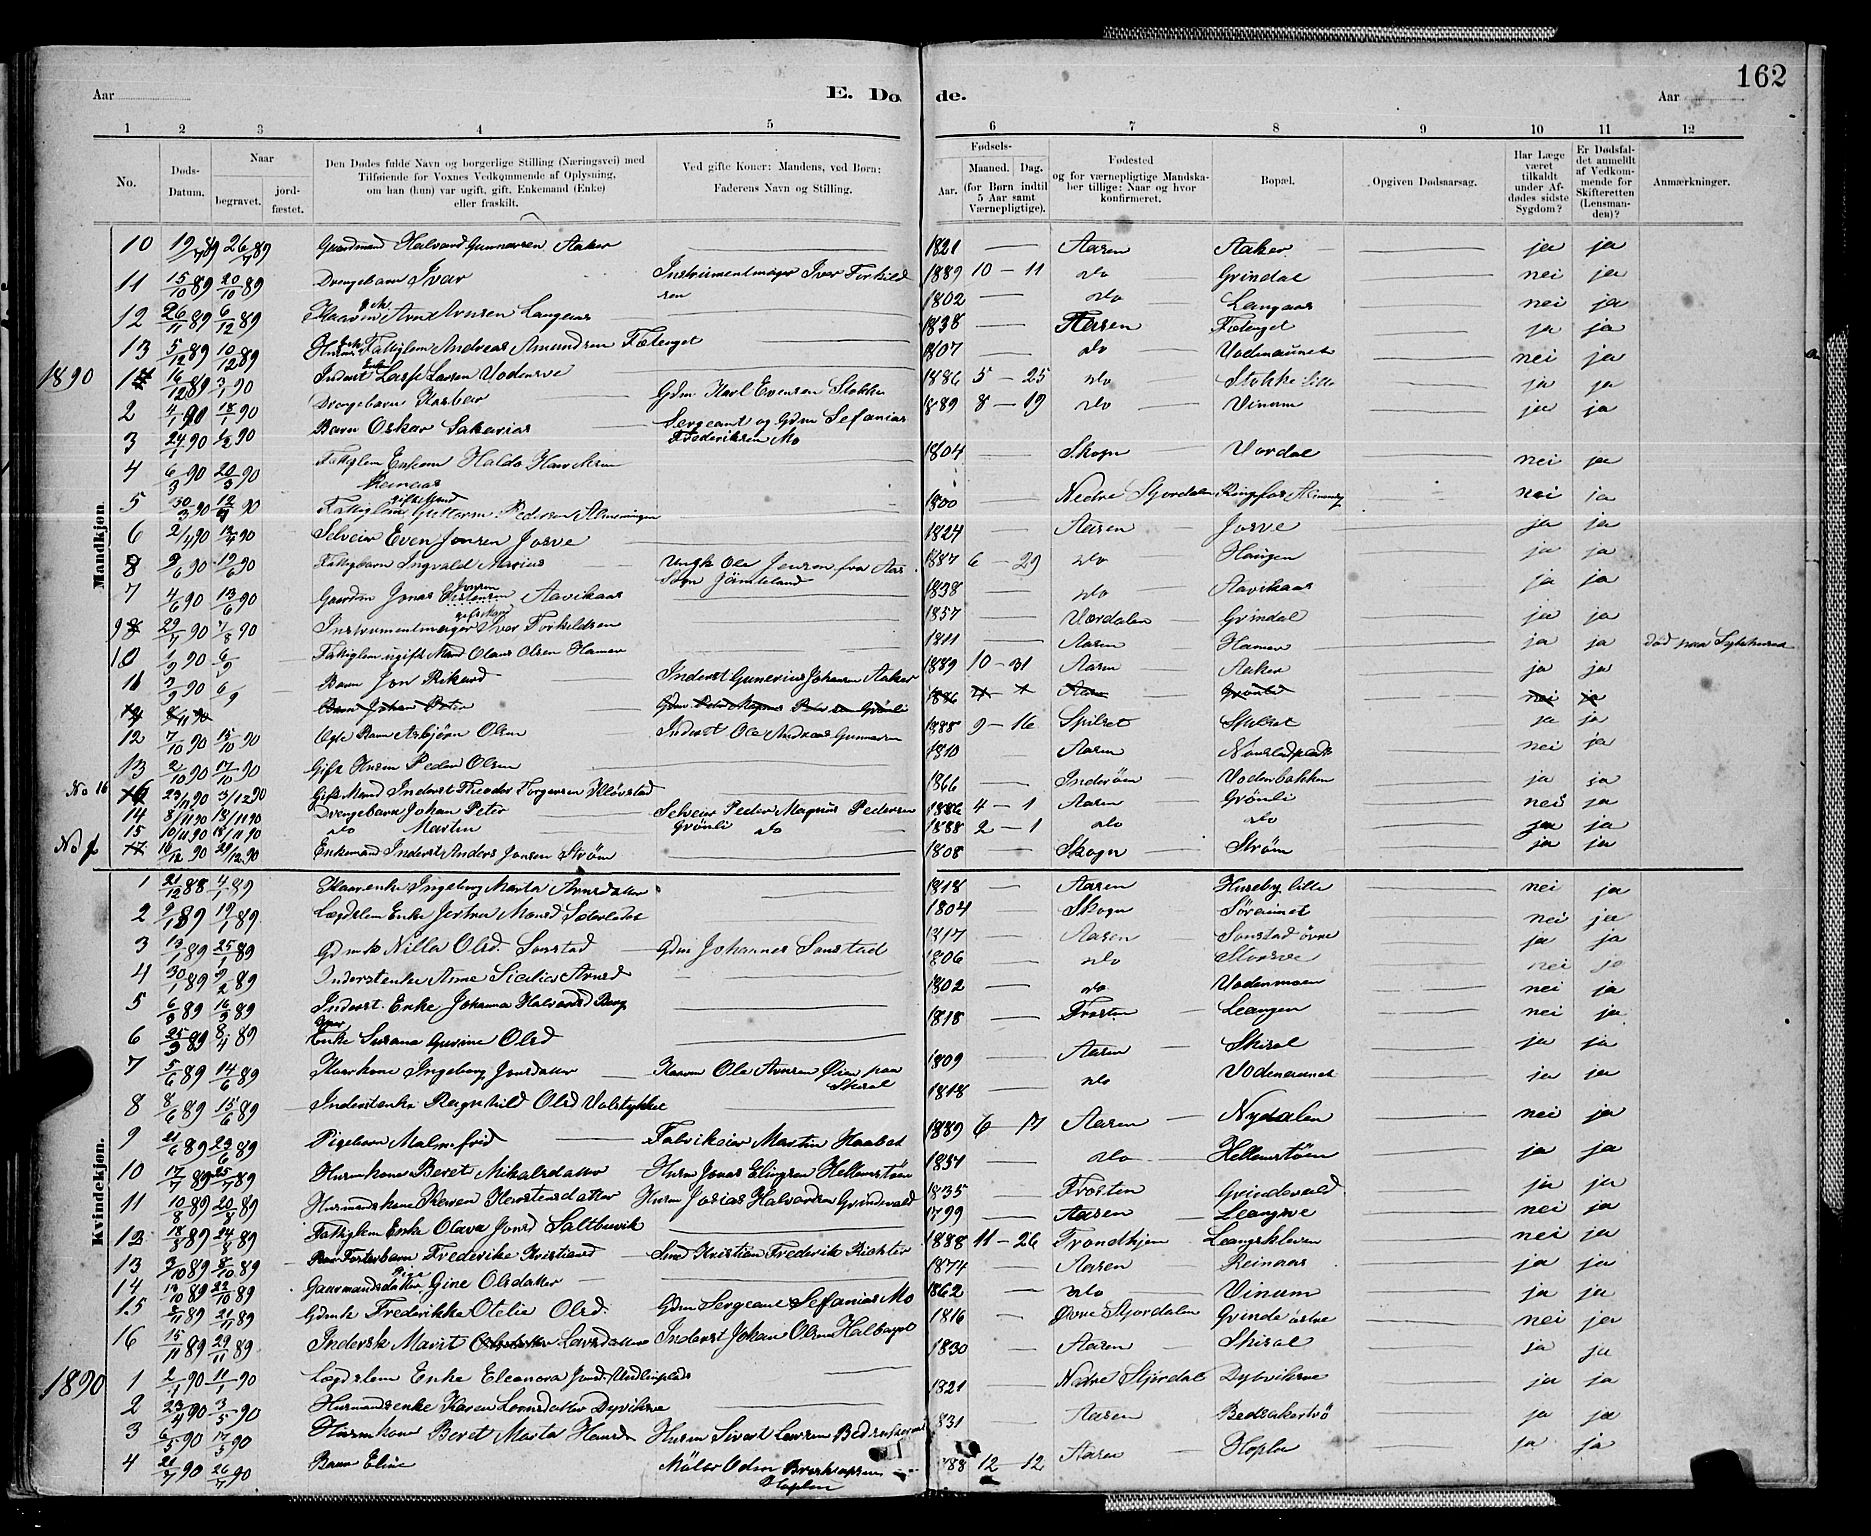 162
Aar
E. Dø de.
Aar
1 2 3 4 5 6 7 8 9 10 11 12
No.
Døds-Datum.
Naar begravet. jordfæstet.
Den Dødes fulde Navn og borgerlige Stilling (Næringsvei) med
Tilføiende for Voxnes Vedkommende af Oplysning,
om han (hun) var ugift, gift, Enkemand (Enke)
eller fraskilt.
Ved gifte Koner: Mandens, ved Børn:
Faderens Navn og Stilling.
Fødsels-
Aar. Maaned. Dag.
(for Børn indtil
5 Aar samt
Værnepligtige).
Fødested
og for værnepligtige Mandska-
ber tillige: Naar og hvor
konfirmeret.
Bopæl.
Opgiven Dødsaarsag.
Har Læge
været
tilkaldt
under Af-
dødes sidste
Sygdom?
Er Dødsfal-
det anmeldt
af Vedkom-
mende for
Skifteretten
(Lensman-
den)?
Anmærkninger.
Mandkjøn
10 19/7 89 26/7 89 Gaardmand Halvard Gunnarsen Aaker 1821 Aasen Aaker ja ja
11 15/10 89 20/10 89 Drengebarn Ivar Instrumentmager Iver Torkildsen 1889 10 - 11 do Grindal nei ja
12 26/11 89 6/12 89 Arnt Arntsen Langaas 1802 do Langaas nei ja
13 5/12 89 10/12 89 Fattiglem Andreas Amundsen Fætenget 1838 Aasen Fætenget ja ja
1890
1 16/12 89 3/1 90 Inderst Larsen 1807 do nei ja
2 4/1 90 18/1 90 Drengebarn Gdm Karl Evensen Stokke 1886 5 - 25 do Stokke lille ja ja
3 24/1 90 90 Barn Oskar Sakarias Sergeant og Gdm Sefanias Frederiksen Mo 1889 8 - 19 do Vinum ja ja
4 6/3 90 20/3 90 Fattiglem Enkem Haldo Reinaas 1804 Skogn Vordal nei ja
5 30/3 90 12/4 90 Fattiglem Pedersen Almenningen 1800 Nedre Stjordalen nei ja
6 2/4 90 13/4 90 Selveier Even Jonsen Josve 1824 Aasen Josve ja ja
8 9/6 90 19/6 90 Fattigbarn Ingvald Marius Ungk Ole Jenson fra Aas Sogn Jämteland 1887 6 - 29 do Haugen ja ja
7 4/6 90 13/6 90 Gaardm Jonas Aavikaas 1838 do Aavikaas ja ja
9 29/7 90 7/8 90 Instrumentmager Iver Torkildsen 1857 Værdalen Grindal ja ja
10 1/9 90 6/9 Fattiglem ugift Mand Olaus Olsen Hamer 1811 Aasen Hamer ja ja død paa Sykehuset
11 3/9 90 6/9 Barn Jon Rikard Inderst Gunerius Johansen Aaker 1889 10 - 31 Aasen Aaker ja ja
8/11 90 Barn Johan Peter Gdm Peder Magnus Pedersen Grönli 1886 4 - 1 Aasen Grönli nei ja
12 7/10 90 15/10 90 Ægte Barn Asbjørn Olsen Inderst Ole Andreas Gunnarsen 1888 9 - 16 Spilset Spilset ja ja
13 2/10 90 17/10 90 Gift Husm Peder Olsen 1810 Aasen Nonstadplads nei ja
No 16 23/11 90 3/12 90 Gift Mand Inderst Theodor Torgersen 1866 Inderöen Vodenbakken ja ja
14 8/11 90 18/11 90 Drengebarn Johan Peter Selveier Peder Magnus Pedersen Grönli 1886 4 - 1 Aasen Grönli nei ja
15 10/11 90 18/11 90 do Martin do 1888 2 - 1 do do ja ja
17 16/12 90 29/12 90 Enkemand Inderst Anders Jonsen Strøm 1808 Skogn Strøm ja ja
Kvindekjøn.
1 21/12 88 4/1 89 Kaarenke Ingeborg Marta Arntsdatter 1818 Aasen Huseby lille nei ja
2 9/1 89 19/1 89 Lægdslem Enke Mansd 1804 Skogn Söraunet nei ja
3 13/1 89 25/1 89 Gdmk Nilla Olsd. Sonstad Gdm Johannes Sonstad 1817 Aasen Sonstad övre ja ja
4 30/1 89 9/2 89 Inderstenke Anne Sicilia Arntsd 1806 do Storsve nei ja
5 6/3 89 16/3 89 Inderst Enke Johanna Halvardsd Berg 1802 do Vodenmoen nei ja
6 25/3 89 8/4 89 Enke Susana Gurine Olsd 1818 Frosten Leangen nei ja
7 5/6 89 14/6 89 Kaarkone Ingeborg Jonsdatter Kaarm Ole Arntsen Øien paa Skisal 1809 Aasen Skisal ja ja
8 8/6 89 15/6 89 Inderstenke Ragnhild Olsd Valstykket 1818 do Vodenaunet ja ja
9 21/6 89 23/6 89 Pigebarn Malmfrid Fabrikeier Martin Haabet 1889 6 - 17 Aasen Nydalen nei ja
10 17/7 89 25/7 89 Husmkone Beret Mikalsdatter Husm Jonas Elingsen Hellemstøen 1851 do Hellemstøen ja ja
11 10/8 89 20/8 89 Husmandskone Karen Karstensdatter Husm Josias Halvardsen Grindevald 1835 Frosten Grindevald ja ja
12 18/8 89 24/8 89 Fattiglem Enke Olava Jonsd Saltbuvik 1799 Aasen Leangsve nei ja
13 3/10 89 8/10 89 Fosterbarn Frederike Kristiansd Smed Kristian Frederik Richter 1888 11 - 26 Trondhjem Leangskleven nei ja
14 13/10 89 22/10 89 Gaarmandsdatter Pige Gine Olsdatter 1874 Aasen Reinaas ja ja
15 2/11 89 21/11 89 Gdmk Frederikke Otelie Olsd. Gdm Sergeant Sefanias Mo 1862 do Vinum ja ja
16 15/11 89 29/11 89 Inderstk Marit Larsdatter Inderst Johan Olsen 1816 Øvre Stjordalen Grinde östre nei ja
1890
1 2/1 90 11/1 90 Lægdslem Enke Eleonora Jonsd. 1830 Aasen Skisal ja ja
2 23/4 90 3/5 90 Husmandsenke Karen Dyviksve 1821 Nedre Stjördal Dybviksve ja ja
3 6/5 90 17/5 90 Husmkone Beret Marta Hansd Husm Sivert Larsen 831 Aasen ja ja
4 21/7 90 26/7 90 Barn Eline Möller Odin Hoplen 188 12 - 12 Aasen Hopla ja ja